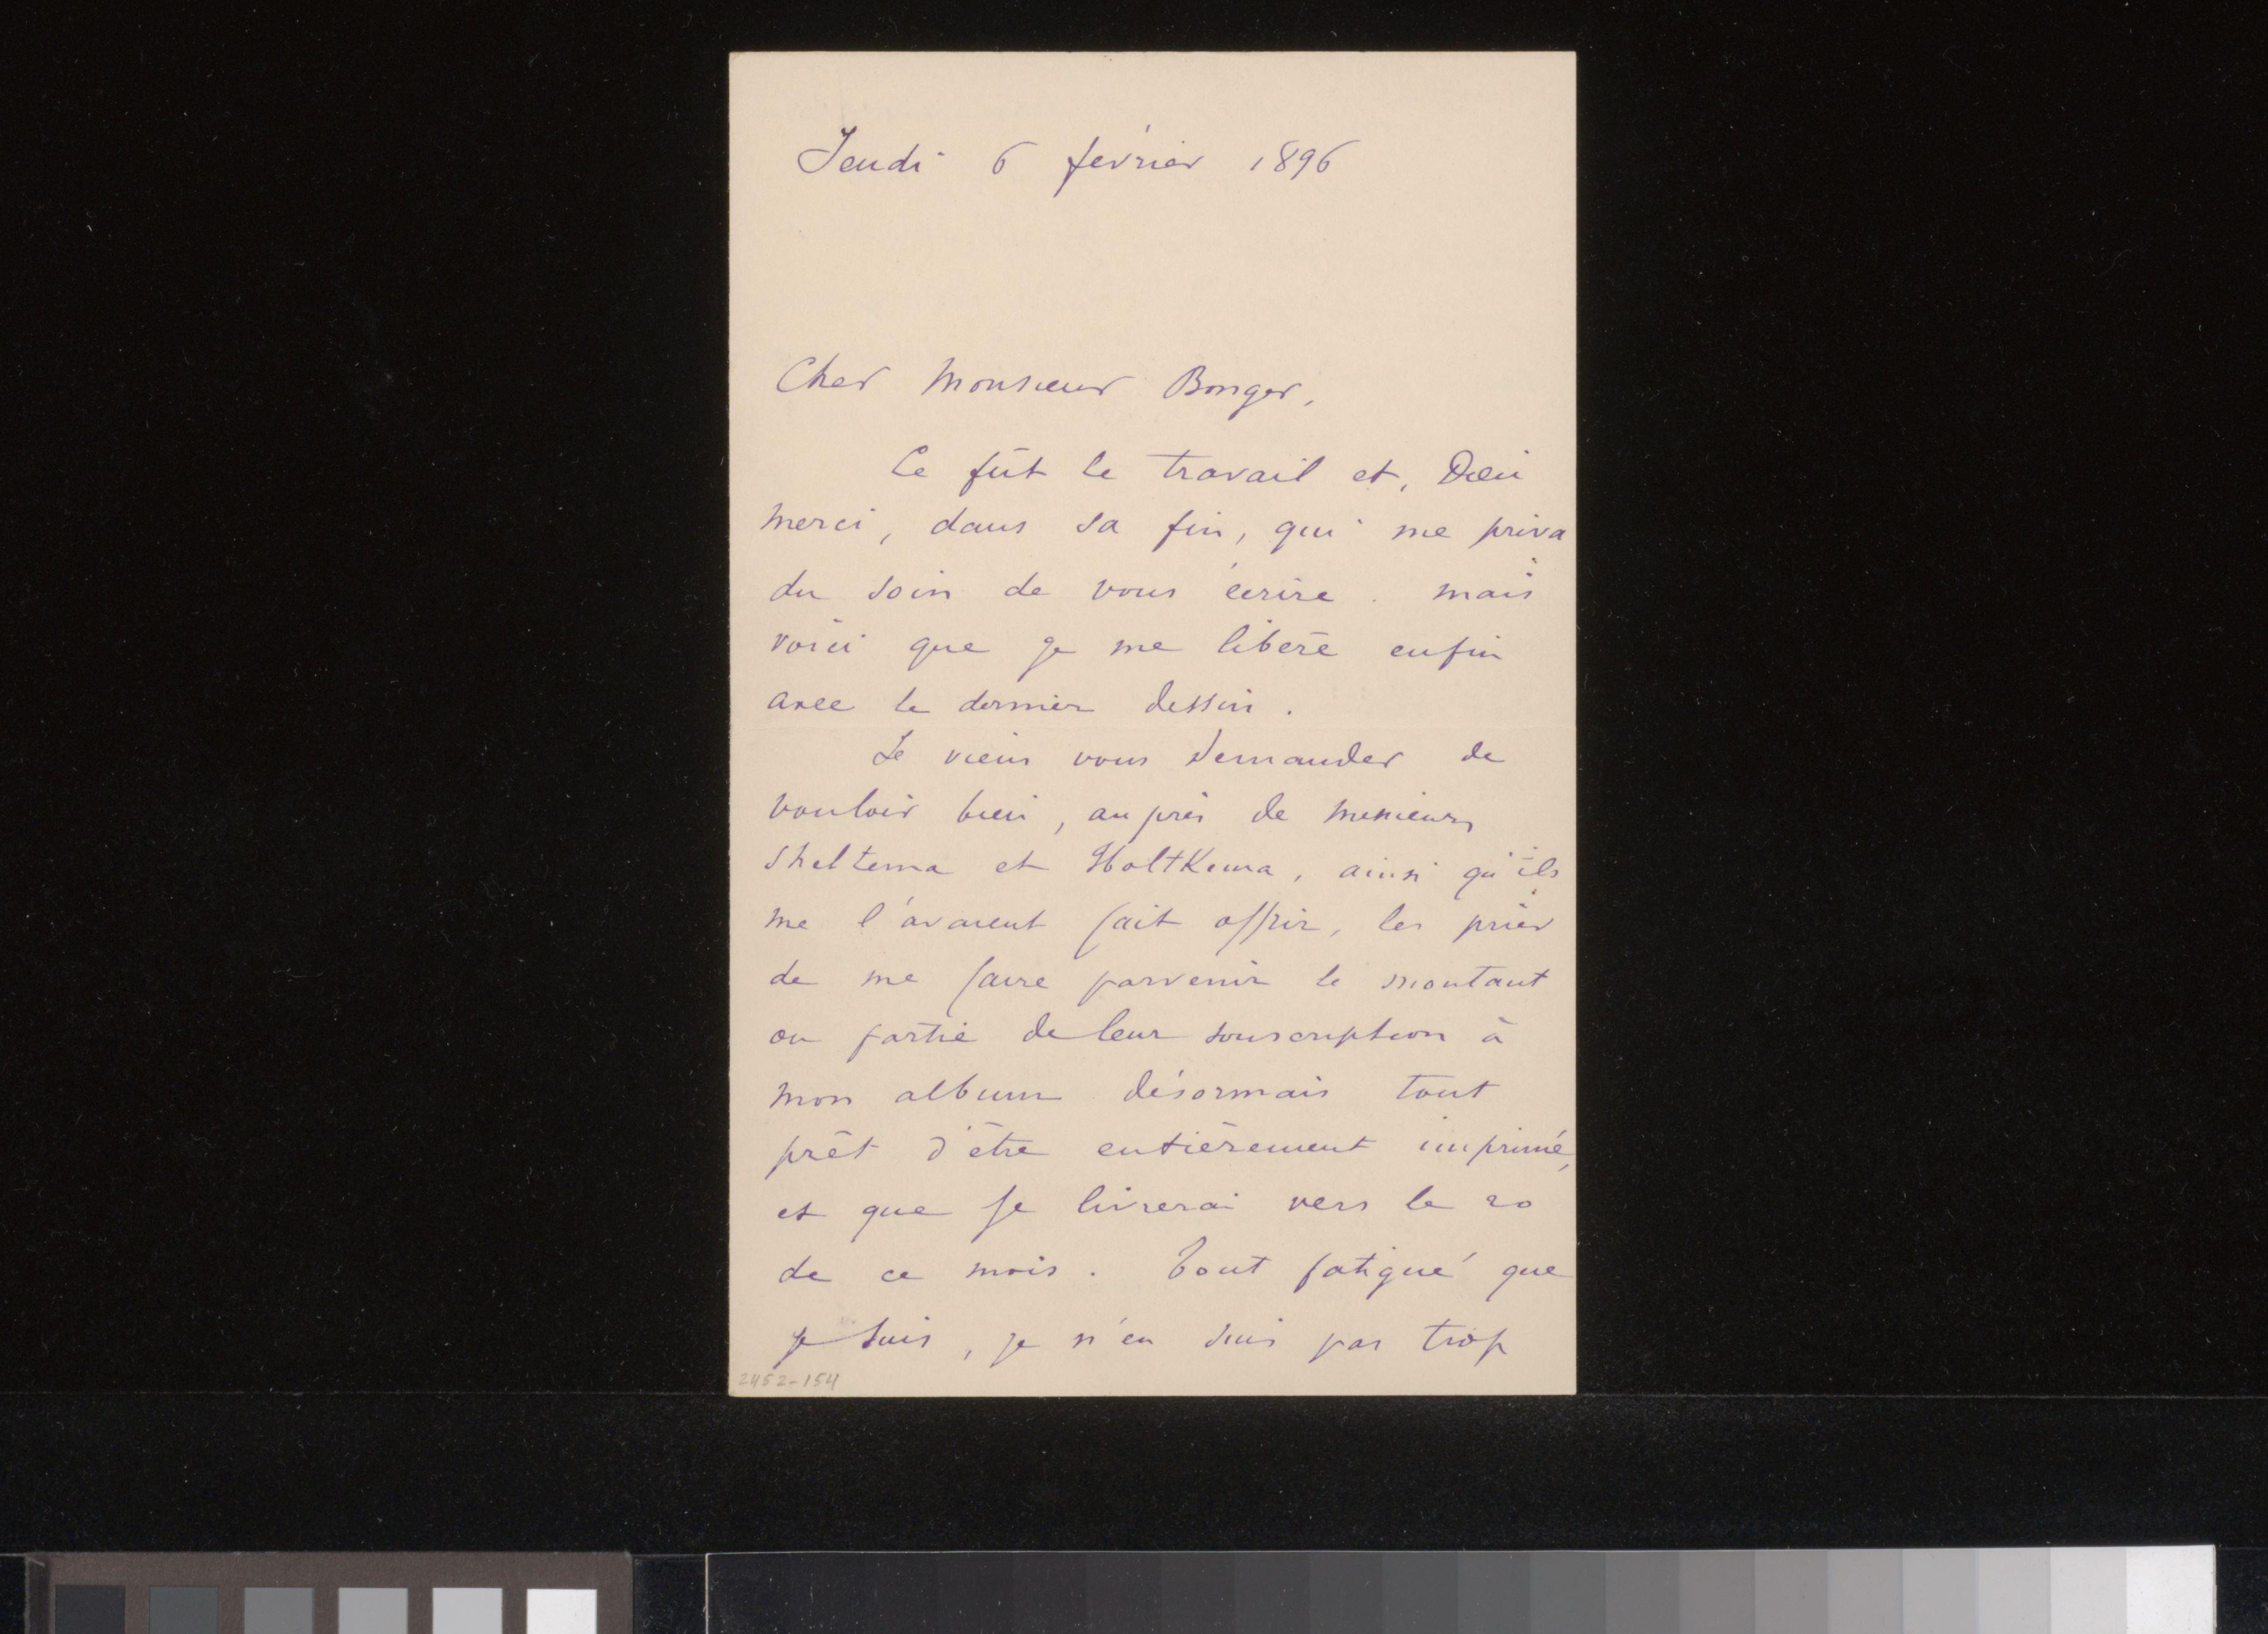 Jeudi 6 février 1896
Cher Monsieur Bonger,
Ce fût le travail et, Dieu
merci, dans sa fin, qui me priva
du soin de vous écrire. mais
voici que je me libère enfin
avec le dernier dessin.
Je viens vous demander de
vouloir bien, auprès de messieurs
Sheltema et HoltKema, ainsi qu'ils
me l'avaient fait offrir, les prier
de me faire parvenir le montant
ou partie de leur souscription à
mon album désormais tout
prêt d'être entièrement imprimé,
et que je livrerai vers le 20
de ce mois. Tout fatigué que
je suis, je n'en suis pas trop
2452-154